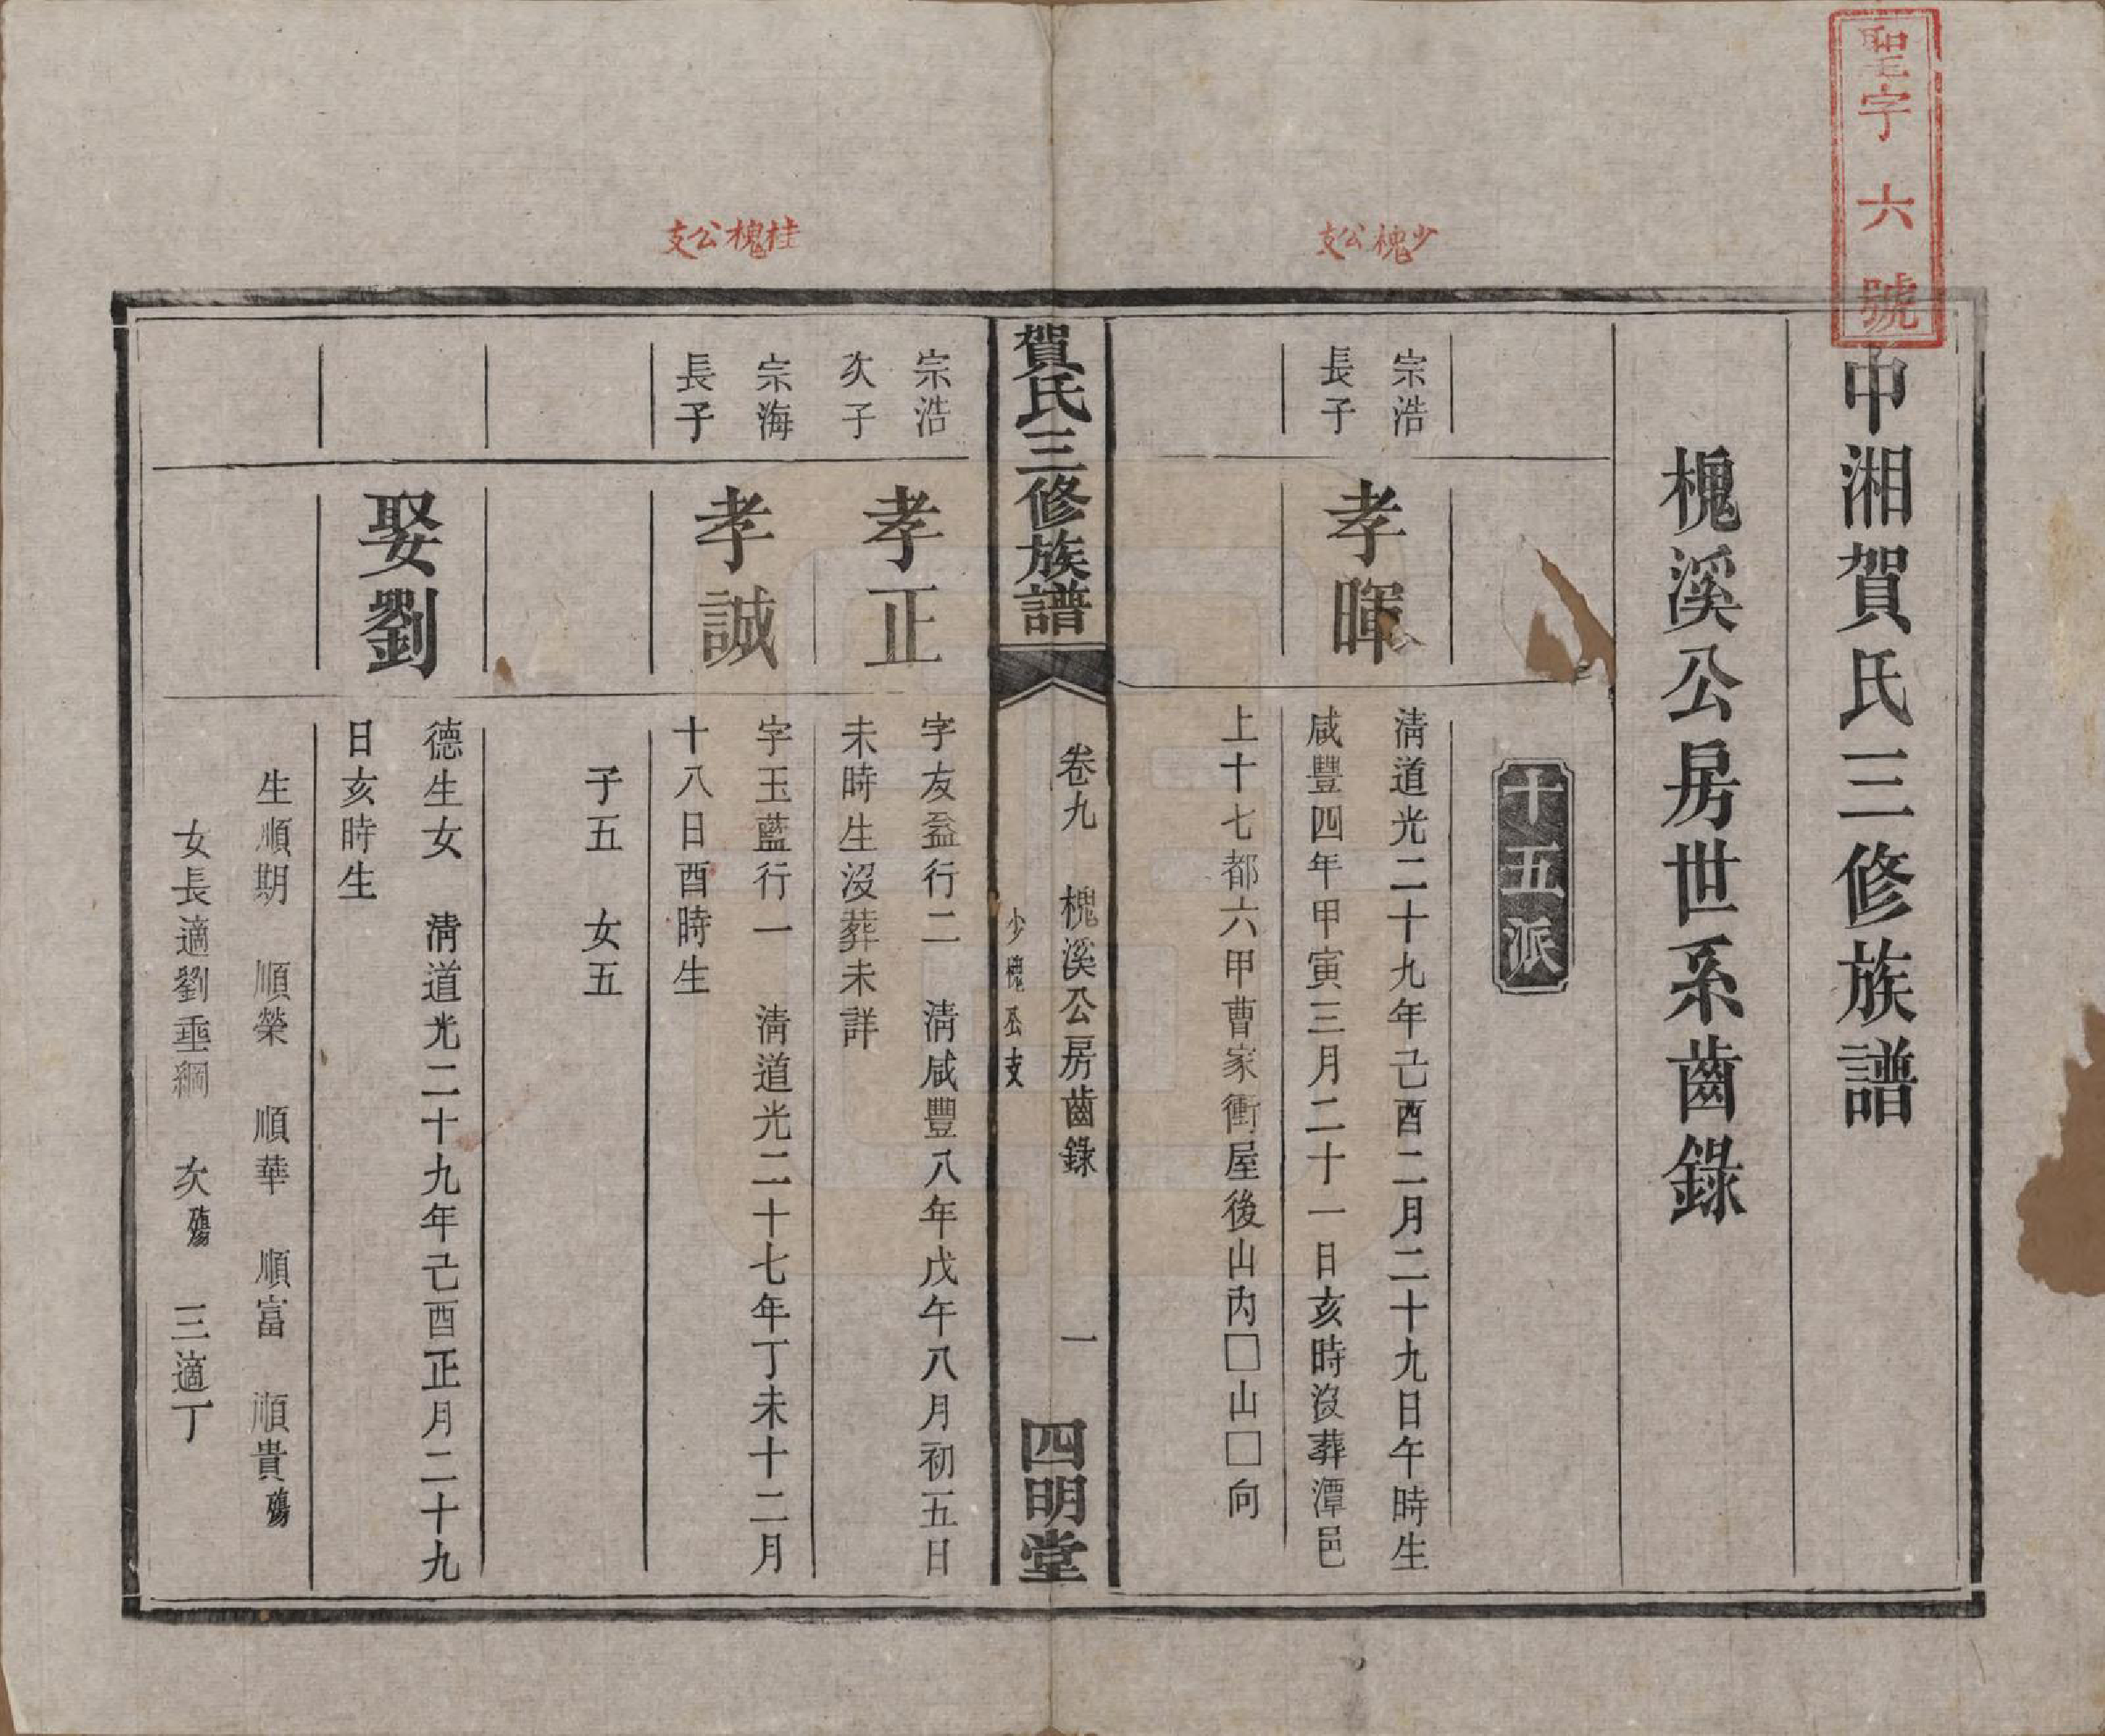 聖字六號
少槐公支
桂槐公支
中湘賀氏三修族譜
槐溪公房世系齒錄
十五派
宗浩
長子
孝暉
淸道光二十九年己酉二月二十九日午時生
咸豐四年甲寅三月二十一日亥時沒葬潭邑
上十七都六甲曹家衝屋後山內□山□向
賀氏三修族譜
卷九 槐溪公房齒錄
少槐公支
一
四明堂
宗浩
次子
孝正
字友益行二 淸咸豐八年戊午八月初五日
未時生沒葬未詳
宗海
長子
孝誠
字玉藍行一 淸道光二十七年丁未十二月
十八日酉時生
子五 女五
娶劉
德生女 淸道光二十九年己酉正月二十九
日亥時生
生順期 順榮 順華 順富 順貴殤
女長適劉垂綱 次殤 三適丁